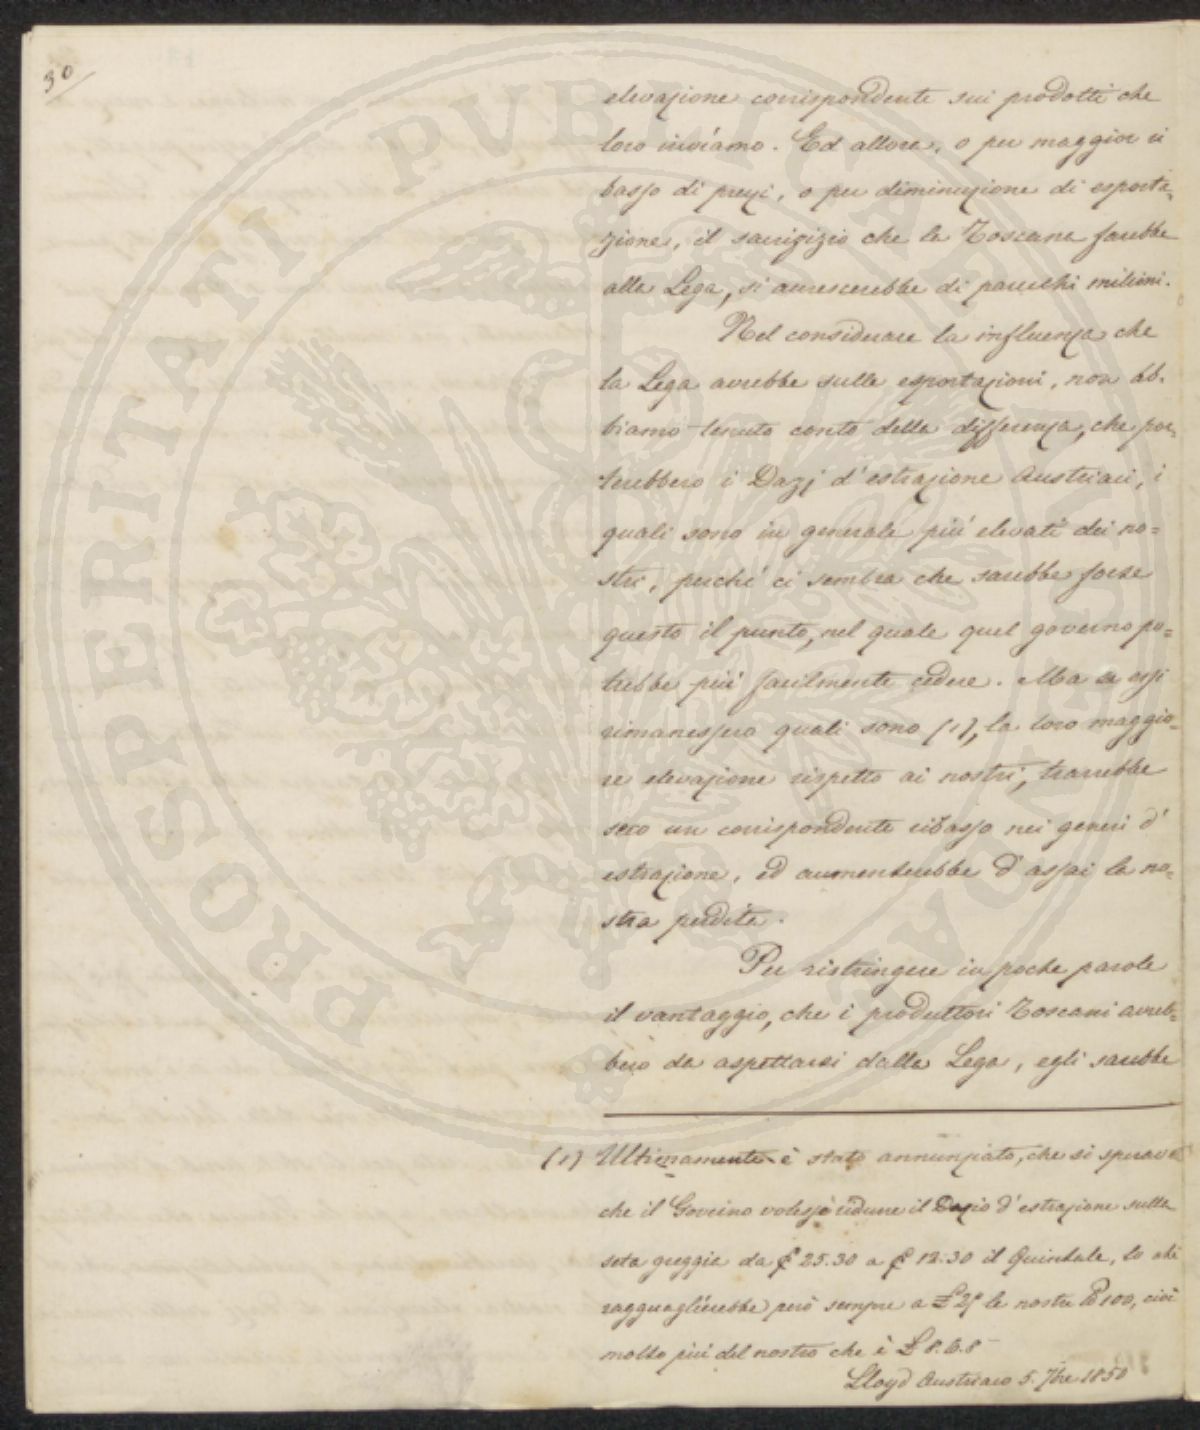 30
elevazione corrispondente sui prodotti che
loro inviamo. Ed allora, o per maggior ri
basso di prezzi, o per diminuzione di esporta=
zione, il sacrifizio che la Toscana farebbe
alla Lega, si accrescerebbe di parecchi milioni.
Nel considerare la influenza che
la Lega avrebbe sulle esportazioni, non ab-
biamo tenuto conto della differenza, che por=
terebbero i Dazj d'estrazione Austriaci, i
quali sono in generale più elevati dei no=
stri, perché ci sembra che sarebbe forse
questo il punto, nel quale quel governo po=
trebbe più facilmente cedere. Ma se essi
rimanessero quali sono (1), la loro maggio=
re elevazione rispetto ai nostri, trarrebbe
seco un corrispondente ribasso nei generi d'
estrazione, ed aumenterebbe d'assai la no=
stra perdita.
Per ristringere in poche parole
il vantaggio, che i produttori Toscani avreb=
bero da aspettarsi dalla Lega, egli sarebbe
(1) Ultimamente è stato annunziato, che si sperava
che il Governo volesse ridurre il Dazio d'estrazione sulla
seta greggia da 25.30 a 12.30 il Quintale, lo che
ragguaglierebbe però sempre a le nostre 100, cioè
molto più del nostro che è £ 8.6.8
Lloyd Austriaco 5. 7bre 1850
PROSPERITATI PVBLICAE